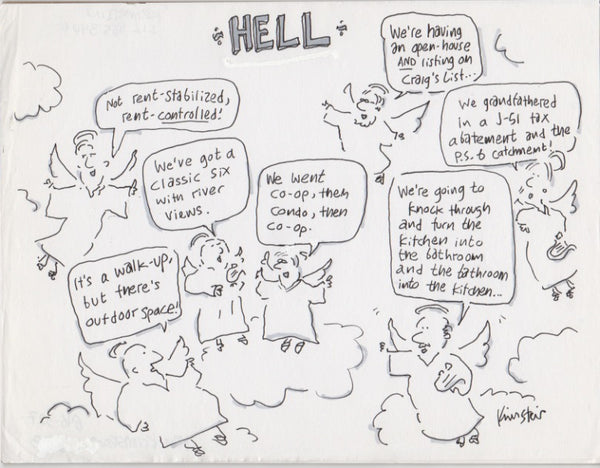 HELL
We're having
an open-house
AND listing on
Craig's List...
Not rent-stabilized,
rent-controlled!
We grandfathered
in a J-51 tax
abatement and the
P.S. 6 catchment!
We've got a
classic six
with river
views.
We went
co-op, then
condo, then
co-op.
We're going to
knock through
and turn the
kitchen into
the bathroom
and the bathroom
into the kitchen...
It's a walk-up,
but there's
outdoor space!